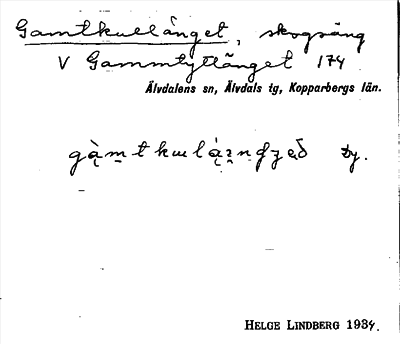 Gamtkullånget, skogsäng
V Gammtyttänget 174
Älvdalens sn, Älvdals tg, Kopparbergs län.
Dy.
HELGE LINDBERG 1934.